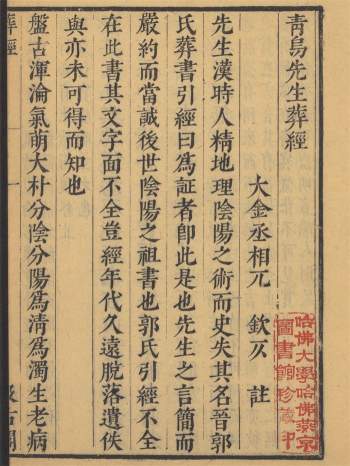 青烏先生葬經
大金丞相兀　欽仄　註
先生漢時人精地理陰陽之術而史失其名晉郭
氏葬書引經曰為証者即此是也先生之言簡而
嚴約而當誠後世陰陽之祖書也郭氏引經不全
在此書其文字面不全豈經年代久遠脫落遺佚
與亦未可得而知也
盤古渾淪氣萌大朴分陰分陽為清為濁生老病
葬經
一
汲古閣
哈佛大學哈佛燕京
圖書館珍藏印